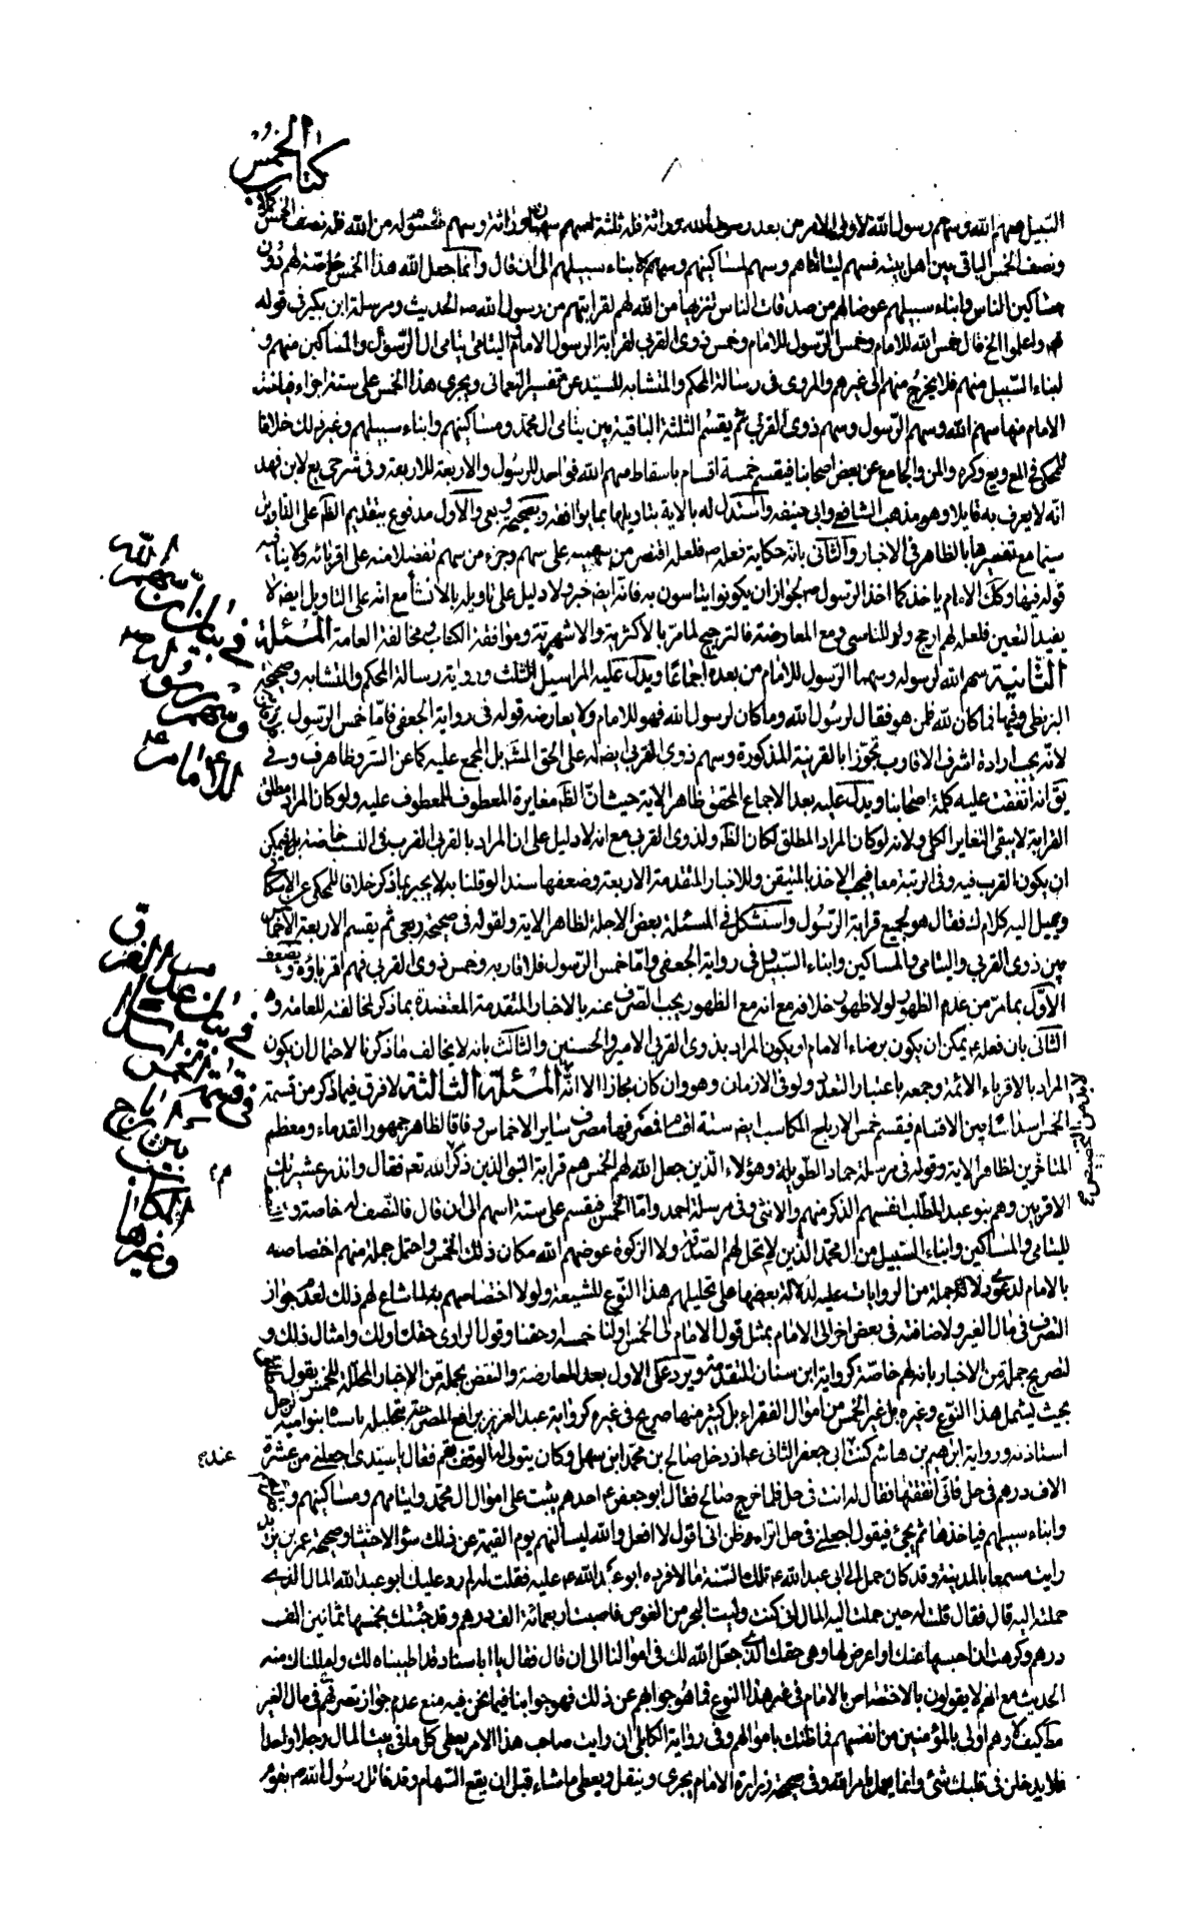 كتاب الخمس
السبيل فسهم الله وسهم رسول الله لاولي الامر من بعد رسول الله وراثة فله ثلثة اسهم سهمان وراثة وسهم مقسوم له من الله فله نصف الخمس كملا
ونصف الخمس الباقي بين اهل بيته فسهم ليتاماهم وسهم لمساكينهم وسهم لابناء سبيلهم الى ان قال وانما جعل الله هذا الخمس خاصة لهم دون
مساكين الناس وابناء سبيلهم عوضا لهم من صدقات الناس تنزيها من الله لهم لقرابتهم من رسول الله ص الحديث ومرسلة ابن بكير في قوله
تعه واعلموا الخ قال خمس الله للامام وخمس الرسول للامام وخمس ذوي القربى لقرابة الرسول الامام واليتامى يتامى ال الرسول والمساكين منهم و
ابناء السبيل منهم فلا يخرج منهم الى غيرهم والمروي في رسالة المحكم والمتشابه للسيد عن تفسير النعماني ويجري هذا الخمس على ستة اجزاء فياخذ
الامام منها سهم الله وسهم الرسول وسهم ذوي القربى ثم يقسم الثلثة الباقية بين يتامى ال محمد ومساكينهم وابناء سبيلهم وغير ذلك خلافا
للمحكي في المع ويع وكره والمن والجامع عن بعض اصحابنا فيقسم خمسة اقسام باسقاط سهم الله فواحد للرسول والاربعة للاربعة وفي شرحي يع لابن فهد
انه لا يعرف به قايلا وهو مذهب الشافعي وابي حنيفه واستدل له بالاية بتاويلها بما يوافقه وبصحيحة ربعي والاول مدفوع بتقديم الظ على التاويل
سيما مع تفسيرها بالظاهر في الاخبار والثاني بانه حكاية فعله ص فلعله اقتصر من سهميه على سهم وجزء من سهم تفضلا منه على اقربائه ولا ينافيه
قوله فيها وكك الامام ياخذ كما اخذ الرسول ص لجواز ان يكونوا يتاسون به فانه ايضه خبر ولا دليل على تاويله بالانشأ مع انه على التاويل ايضا لا
يفيد التعين فلعله ارجح ولو للتاسي ومع المعارضة فالترجيح لما مر بالاكثرية والاشهرية وموافقة الكتاب ومخالفة العامة المسئلة
الثانية سهم الله لرسوله وسهما الرسول للامام من بعده اجماعا ويدل عليه المراسيل الثلث ورواية رسالة المحكم والمتشابه وصحيحة
البزنطي وفيها فما كان لله فلمن هو فقال لرسول الله وما كان لرسول الله فهو للامام ولا يعارضه قوله في رواية الجعفي فاما خمس الرسول فلاقاربه
لانه يجب ارادة اشرف الاقارب تجوزا بالقرينة المذكورة وسهم ذوي القربى ايضه له على الحق المشه بل المجمع عليه كما عن السر وظاهر ف وفي
يق انه اتفقت عليه كلمة اصحابنا ويدل عليه بعد الاجماع المحقق ظاهر الاية حيث ان الظ مغايرة المعطوف للمعطوف عليه ولو كان المراد مطلق
القرابة لا يبقى التغاير الكلي ولانه لو كان المراد المطلق لكان الظ ولذوي القربى مع انه لا دليل على ان المراد بالقربى القرب في النسب خاصة بل يمكن
ان يكون القرب فيه وفي الرتبة معا فيجب الاخذ بالمتيقن وللاخبار المتقدمة الاربعة وضعفها سندا لو قلنا به لا يجبر بما ذكر خلافا للمحكي عن الاسكافي
ويميل اليه كلام ك فقال هو لجميع قرابة الرسول واستشكل في المسئلة بعض الاجلة لظاهر الاية ولقوله في صحيحة ربعي ثم يقسم الاربعة الاخماس
بين ذوي القربى واليتامى والمساكين وابناء السبيل وفي رواية الجعفي واما خمس الرسول فلاقاربه وخمس ذوي القربى فهم اقرباؤه ويضعف
الاول بما مر من عدم الظهور لولا ظهور خلافه مع انه مع الظهور يجب الصرف عنه بالاخبار المتقدمة المعتضدة بما ذكر لمخالفته للعامة و
الثاني بان فعله ص يمكن ان يكون برضاء الامام او يكون المراد بذوي القربى الامير والحسنين والثالث بانه لا يخالف ما ذكرنا لاحتمال ان يكون
المراد بالاقرباء الائمة وجمعه باعتبار التعدد ولو في الازمان وهو وان كان مجازا الا انه لا بد من التخصيص المسئلة الثالثة لا فرق فيما ذكر من قسمة
الخمس اسداسا بين الاقسام فيقسم خمس الارباح المكاسب ايضه ستة اقسام فصرفها مصرف ساير الاخماس وفاقا لظاهر جمهور القدماء ومعظم
المتاخرين لظاهر الاية وقوله في مرسلة حماد الطويلة وهؤلاء الذين جعل الله لهم الخمس هم قرابة النبي الذين ذكرهم الله تعه فقال وانذر عشيرتك
الاقربين وهم بنو عبد المطلب انفسهم الذكر منهم والانثى وفي مرسلة احمد واما الخمس فيقسم على ستة اسهم الى ان قال فالنصف له خاصة و
لليتامى والمساكين وابناء السبيل من ال محمد الذين لا تحل لهم الصدقة ولا الزكوة عوضهم الله مكان ذلك الخمس واحتمل جملة منهم اختصاصه
بالامام لدعوى دلالة جملة من الروايات عليه لدلالة بعضها على تحليلهم هذا النوع للشيعة ولولا اختصاصهم به لما ساغ لهم ذلك لعدم جواز
التصرف في مال الغير ولاضافته في بعض اخر الى الامام بمثل قول الامام لي الخمس ولنا خمسه وحقنا وقول الراوي حقك ولك وامثال ذلك و
لتصريح جملة من الاخبار بانه لهم خاصة كرواية ابن سنان المتقدمة ويرد على الاول بعد المعارضة والنقض بجملة من الاخبار المحللة للخمس بقول مطلق
بحيث ليشمل هذا النوع وغيره بل غير الخمس من اموال الفقراء بل كثير منها صريح في غيره كرواية عبد العزيز بن نافع المصرحة بتحليله ما سباه بنو امية لرجل
استاذنه ورواية ابرهيم بن هاشم كنت عند ابي جعفر الثاني ع اذ دخل صالح بن محمد ابن سهل وكان يتولى له الوقف بقم فقال يا سيدي اجعلني من عشرة
الاف درهم في حل فاني انفقتها فقال له انت في حل فلما خرج صالح فقال ابو جعفر ع احدهم يثبت على اموال ال محمد وايتامهم ومساكينهم و
وابناء سبيلهم فياخذها ثم يجيئ فيقول اجعلني في حل اتراه ظن اني اقول لا افعل والله ليسالنهم يوم القيمة عن ذلك سؤالا حثيثا وصحيحة عمر بن يزيد
رايت مسمعا بالمدينة وقد كان حمل الى ابي عبد الله ع تلك السنة مالا فرده ابو عبد الله ع عليه فقلت له لم رد عليك ابو عبد الله المال الذي
حملته اليه قال فقال قلت له حين حملت اليه المال اني كنت وليت البحرين الغوص فاصبت اربعمائة الف درهم وقد جئتك بخمسها ثمانين الف
درهم وكرهت ان احبسها عنك او اعرض لها وهي حقك الذي جعل الله لك في اموالنا الى ان قال فقال يا ابا سيار قد اطيبناه لك وحللناك منه
الحديث مع انهم لا يقولون بالاختصاص بالامام في غير هذا النوع فما هو جوابهم عن ذلك فهو جوابنا فيما نحن فيه منع عدم جواز تصرفهم في مال الغير
مط كيف وهم اولى بالمؤمنين من انفسهم فما ظنك باموالهم وفي رواية الكابلي ان رايت صاحب هذا الامر يعطي كل ما في بيت المال رجلا واحدا
فلا يدخلن في قلبك شئ وانما يعمل بامر الله وفي صحيحة زرارة الامام يجري وينفل ويعطي ما شاء قبل ان يقع السهام وقد قاتل رسول الله ص بقوم
في بيان ان سهم الله
وسهم رسوله
للامام ع
في بيان عدم الفرق
في قسمة الخمس اسداسا
بين ارباح
المكاسب
وغيرها
لا بد من التخصيص
هم ع
عند ع